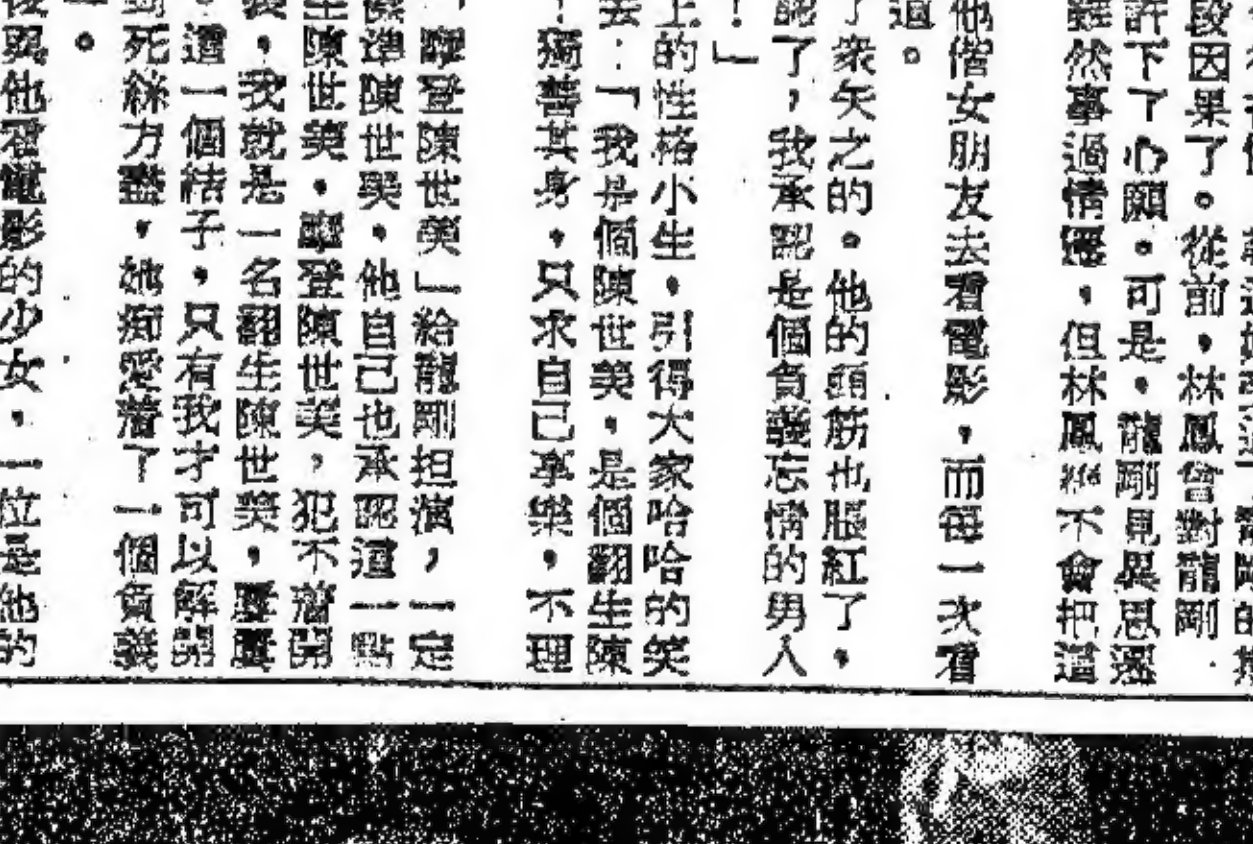 的
段因果了。從前,林鳳曾對龍剛
許下了心願。可是,龍剛見異思遷
雖然事過情遷,但林鳳絕不會把這
他偕女朋友去看電影,而每一次看
道。
了衆矢之的。他的頭筋也脹紅了,
認了,我承認是個負義忘情的男人
!」
上的性格小生,引得大家哈哈的笑
去:「我是個陳世美,是個翻生陳
!獨善其身,只求自己享樂,不理
摩登陳世美」給龍剛担演,一定
陳世美。他自己也承認這一點
陳世美。摩登陳世美,犯不着開
,我就是一名翻生陳世美,屢屢
。這一個結子,只有我才可以解開
到死絲方盡,她痴愛着了一個負義
。
他看電影的少女,一位是他的